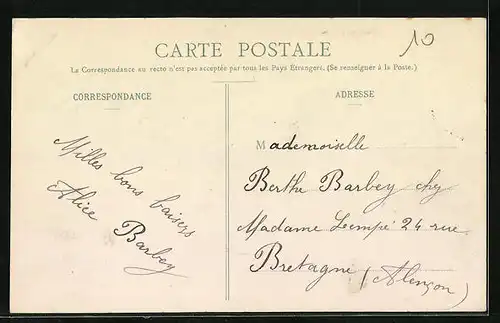 CARTE POSTALE
10
La Correspondance au recto n'est pas acceptée par tous les Pays Etrangers. (Se renseigner à la Poste.)
CORRESPONDANCE
Milles bons baisers
Alice
Barbey
ADRESSE
Mademoiselle
Berthe Barbey chez
Madame Lempé 24 rue
Bretagne (Alençon)